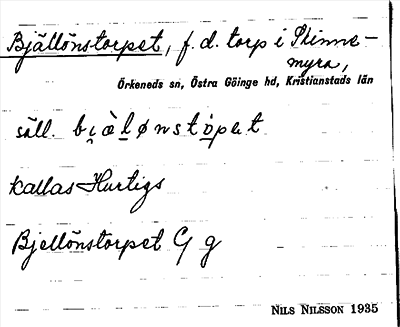 Bjällönstorpet, f. d. torp i Skinne-
myra,
Örkeneds sn, Östra Göinge hd, Kristianstads län
säll. bi̯àl̲ønstò̲pət
kallas Hurtigs
Bjellönstorpet G g
NILS NILSSON 1935